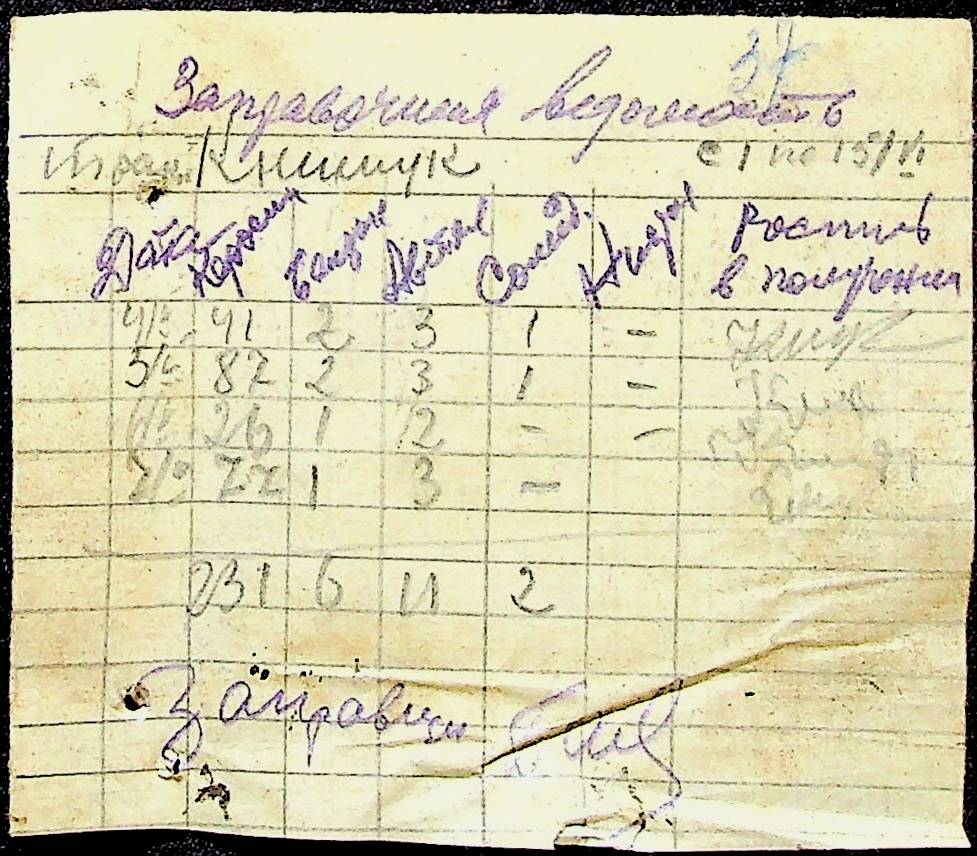 37
Заправочная ведомость
Книшук с 1 по 15/VI
Дата Керосин Бензин Автол Солид. Нигрол Роспись
в получении
4/VI 41 2 3 1 -
5/VI 87 2 3 1 -
6/VI 26 1 2 - -
7/VI 77 1 3 -
231 6 11 2
Заправщик